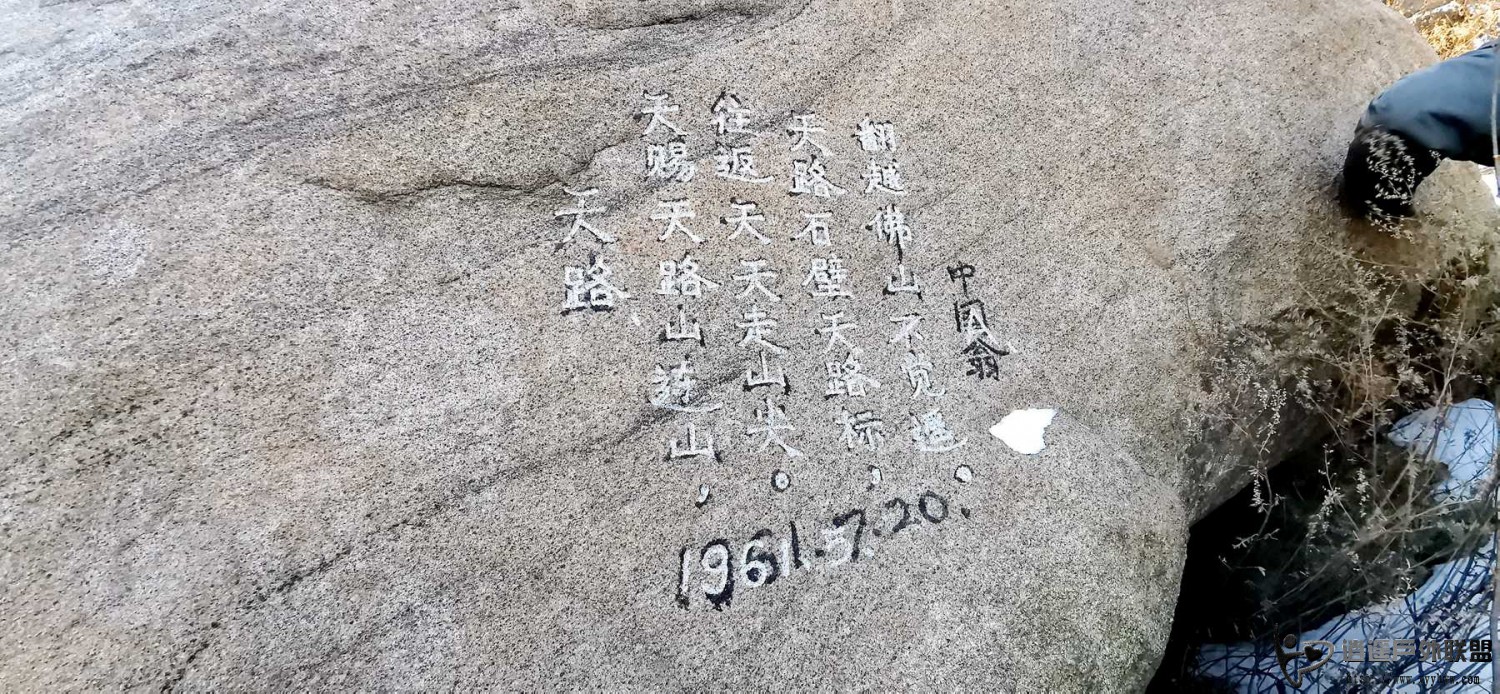 天路
天赐天路山连山，
往返天天走山尖。
天路石壁天路标，
翻越佛山不觉遥。
中国翁
1961.7.20.
逍遥户外联盟